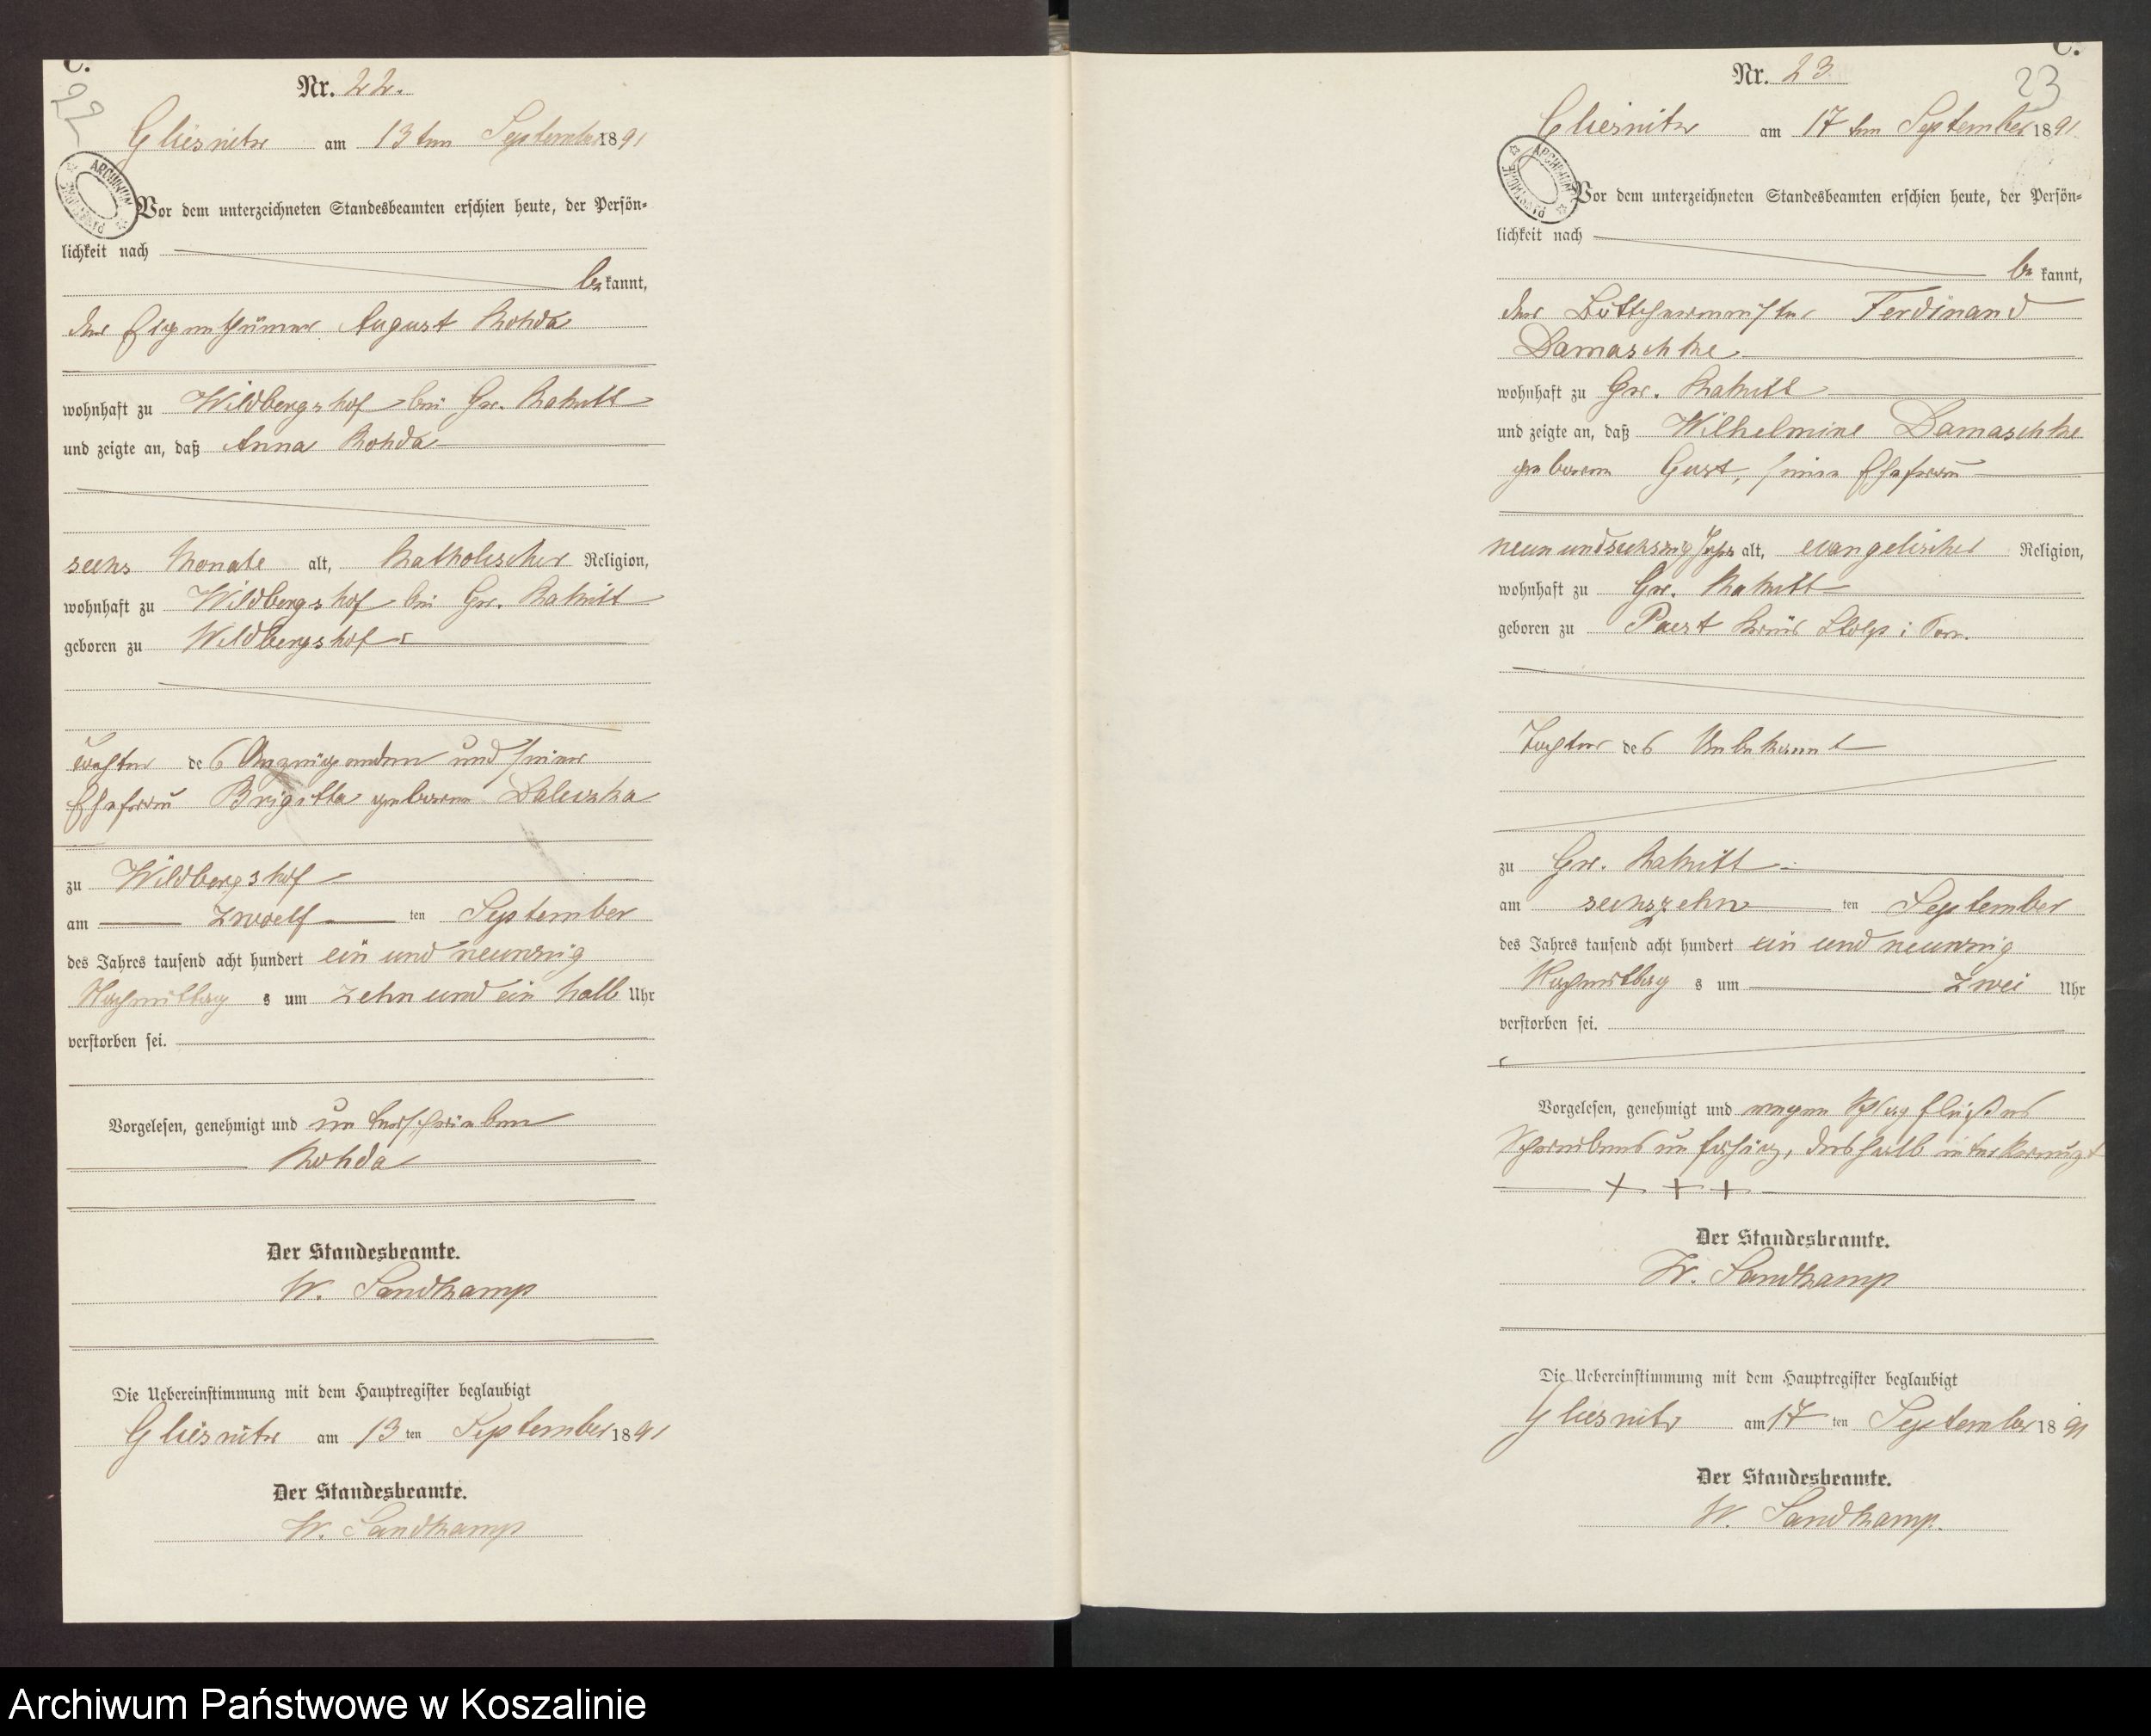 C.
22
Nr. 22.
Gliesnitz am 13ten September 1891
ARCHIWUM PAŃSTWOWE
Vor dem unterzeichneten Standesbeamten erschien heute, der Persön-
lichkeit nach
bekannt,
der Eigenthümer August Rohda
wohnhaft zu Wildbergshof bei Gr. Rakitt
und zeigte an, daß Anna Rohda
sechs Monate alt, katholischer Religion,
wohnhaft zu Wildbergshof bei Gr. Rakitt
geboren zu Wildbergshof
Tochter des Anzeigenden und seiner
Ehefrau Brigitta geborene
zu Wildbergshof
am zwoelften September
des Jahres tausend acht hundert ein und neunzig
Nachmittags um zehn und ein halb Uhr
verstorben sei.
Vorgelesen, genehmigt und unterschrieben
Rohda
Der Standesbeamte.
W. Sandkamp
Die Uebereinstimmung mit dem Hauptregister beglaubigt
Gliesnitz am 13ten September 1891
Der Standesbeamte.
W. Sandkamp
C.
23
Nr. 23
Gliesnitz am 17ten September 1891
ARCHIWUM PAŃSTWOWE
Vor dem unterzeichneten Standesbeamten erschien heute, der Persön-
lichkeit nach
bekannt,
der Böttchermeister Ferdinand
Damaschke
wohnhaft zu Gr. Rakitt
und zeigte an, daß Wilhelmine Damaschke
geborene Gust, seine Ehefrau
neunundsechszig Jahr alt, evangelischer Religion,
wohnhaft zu Gr. Rakitt
geboren zu Paest Kreis Stolp i Pom.
Tochter des Unbekannt
zu Gr. Rakitt
am sechszehnten September
des Jahres tausend acht hundert ein und neunzig
Nachmittags um zwei Uhr
verstorben sei.
Vorgelesen, genehmigt und wegen Schlagflußes
Schreibens unfähig, deshalb unterkreuzt
+ + +
Der Standesbeamte.
W. Sandkamp
Die Uebereinstimmung mit dem Hauptregister beglaubigt
Gliesnitz am 17ten September 1891
Der Standesbeamte.
W. Sandkamp.
Archiwum Państwowe w Koszalinie